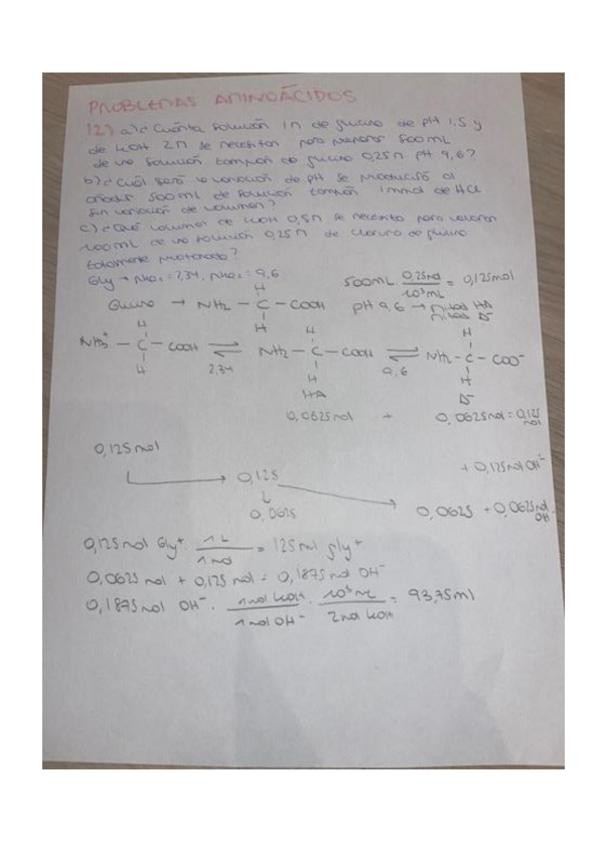 PROBLEMAS AMINOÁCIDOS
12) a) ¿Cuánta solución 1M de glicina de pH 1.5 y
de KOH 2M se necesitan para preparar 500mL
de una solución tampón de glicina 0,25M pH 9,6?
b) ¿Cuál será la variación de pH se producirá al
añadir 500mL de solución tampón 1mmol de HCl
sin variación de volumen?
c) ¿Qué volumen de KOH 0,5M se necesita para valorar
100mL de una solución 0,25M de cloruro de glicina
totalmente protonada?
Gly → = 2,34, = 9,6
500mL · 0,25mol / 10³mL = 0,125mol
Glicina → NH2 – C – COOH
H
H
pH 9,6 → mitad HA
mitad A-
NH3+ – C – COOH ⇌ NH2 – C – COOH ⇌ NH2 – C – COO-
H H H
H H H
2,34 9,6
HA A-
0,0625mol + 0,0625mol = 0,125 mol
0,125mol
+ 0,125mol OH-
→ 0,125
↓
0,0625
→ 0,0625 + 0,0625mol OH-
0,125mol Gly+ · 1L / 1mol = 125ml gly+
0,0625mol + 0,125mol = 0,1875mol OH-
0,1875mol OH- · 1mol KOH / 1mol OH- · 10³mL / 2mol KOH = 93,75ml